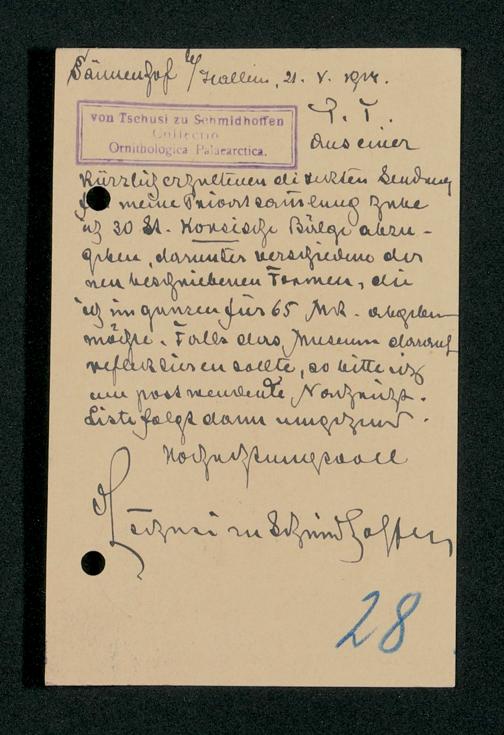 Tännenhof b/Hallein, 21. V. 1914.
von Tschusi zu Schmidhoffen
Collectio
Ornithologica Palaearctica.
P. T.
Aus einer
kürzlich erhaltenen direkten Sendung
für meine Privatsammlung habe
ich 30 St. Korsische Bälge abzu-
geben, darunter verschiedene der
neu beschriebenen Formen, die
ich im ganzen für 65 Mk. abgeben
möchte. Falls das Museum darauf
reflektieren sollte, so bitte ich
um postwendende Nachricht.
Liste folgt dann umgehend.
Hochachtungsvoll
Tschusi zu Schmidhoffen
28